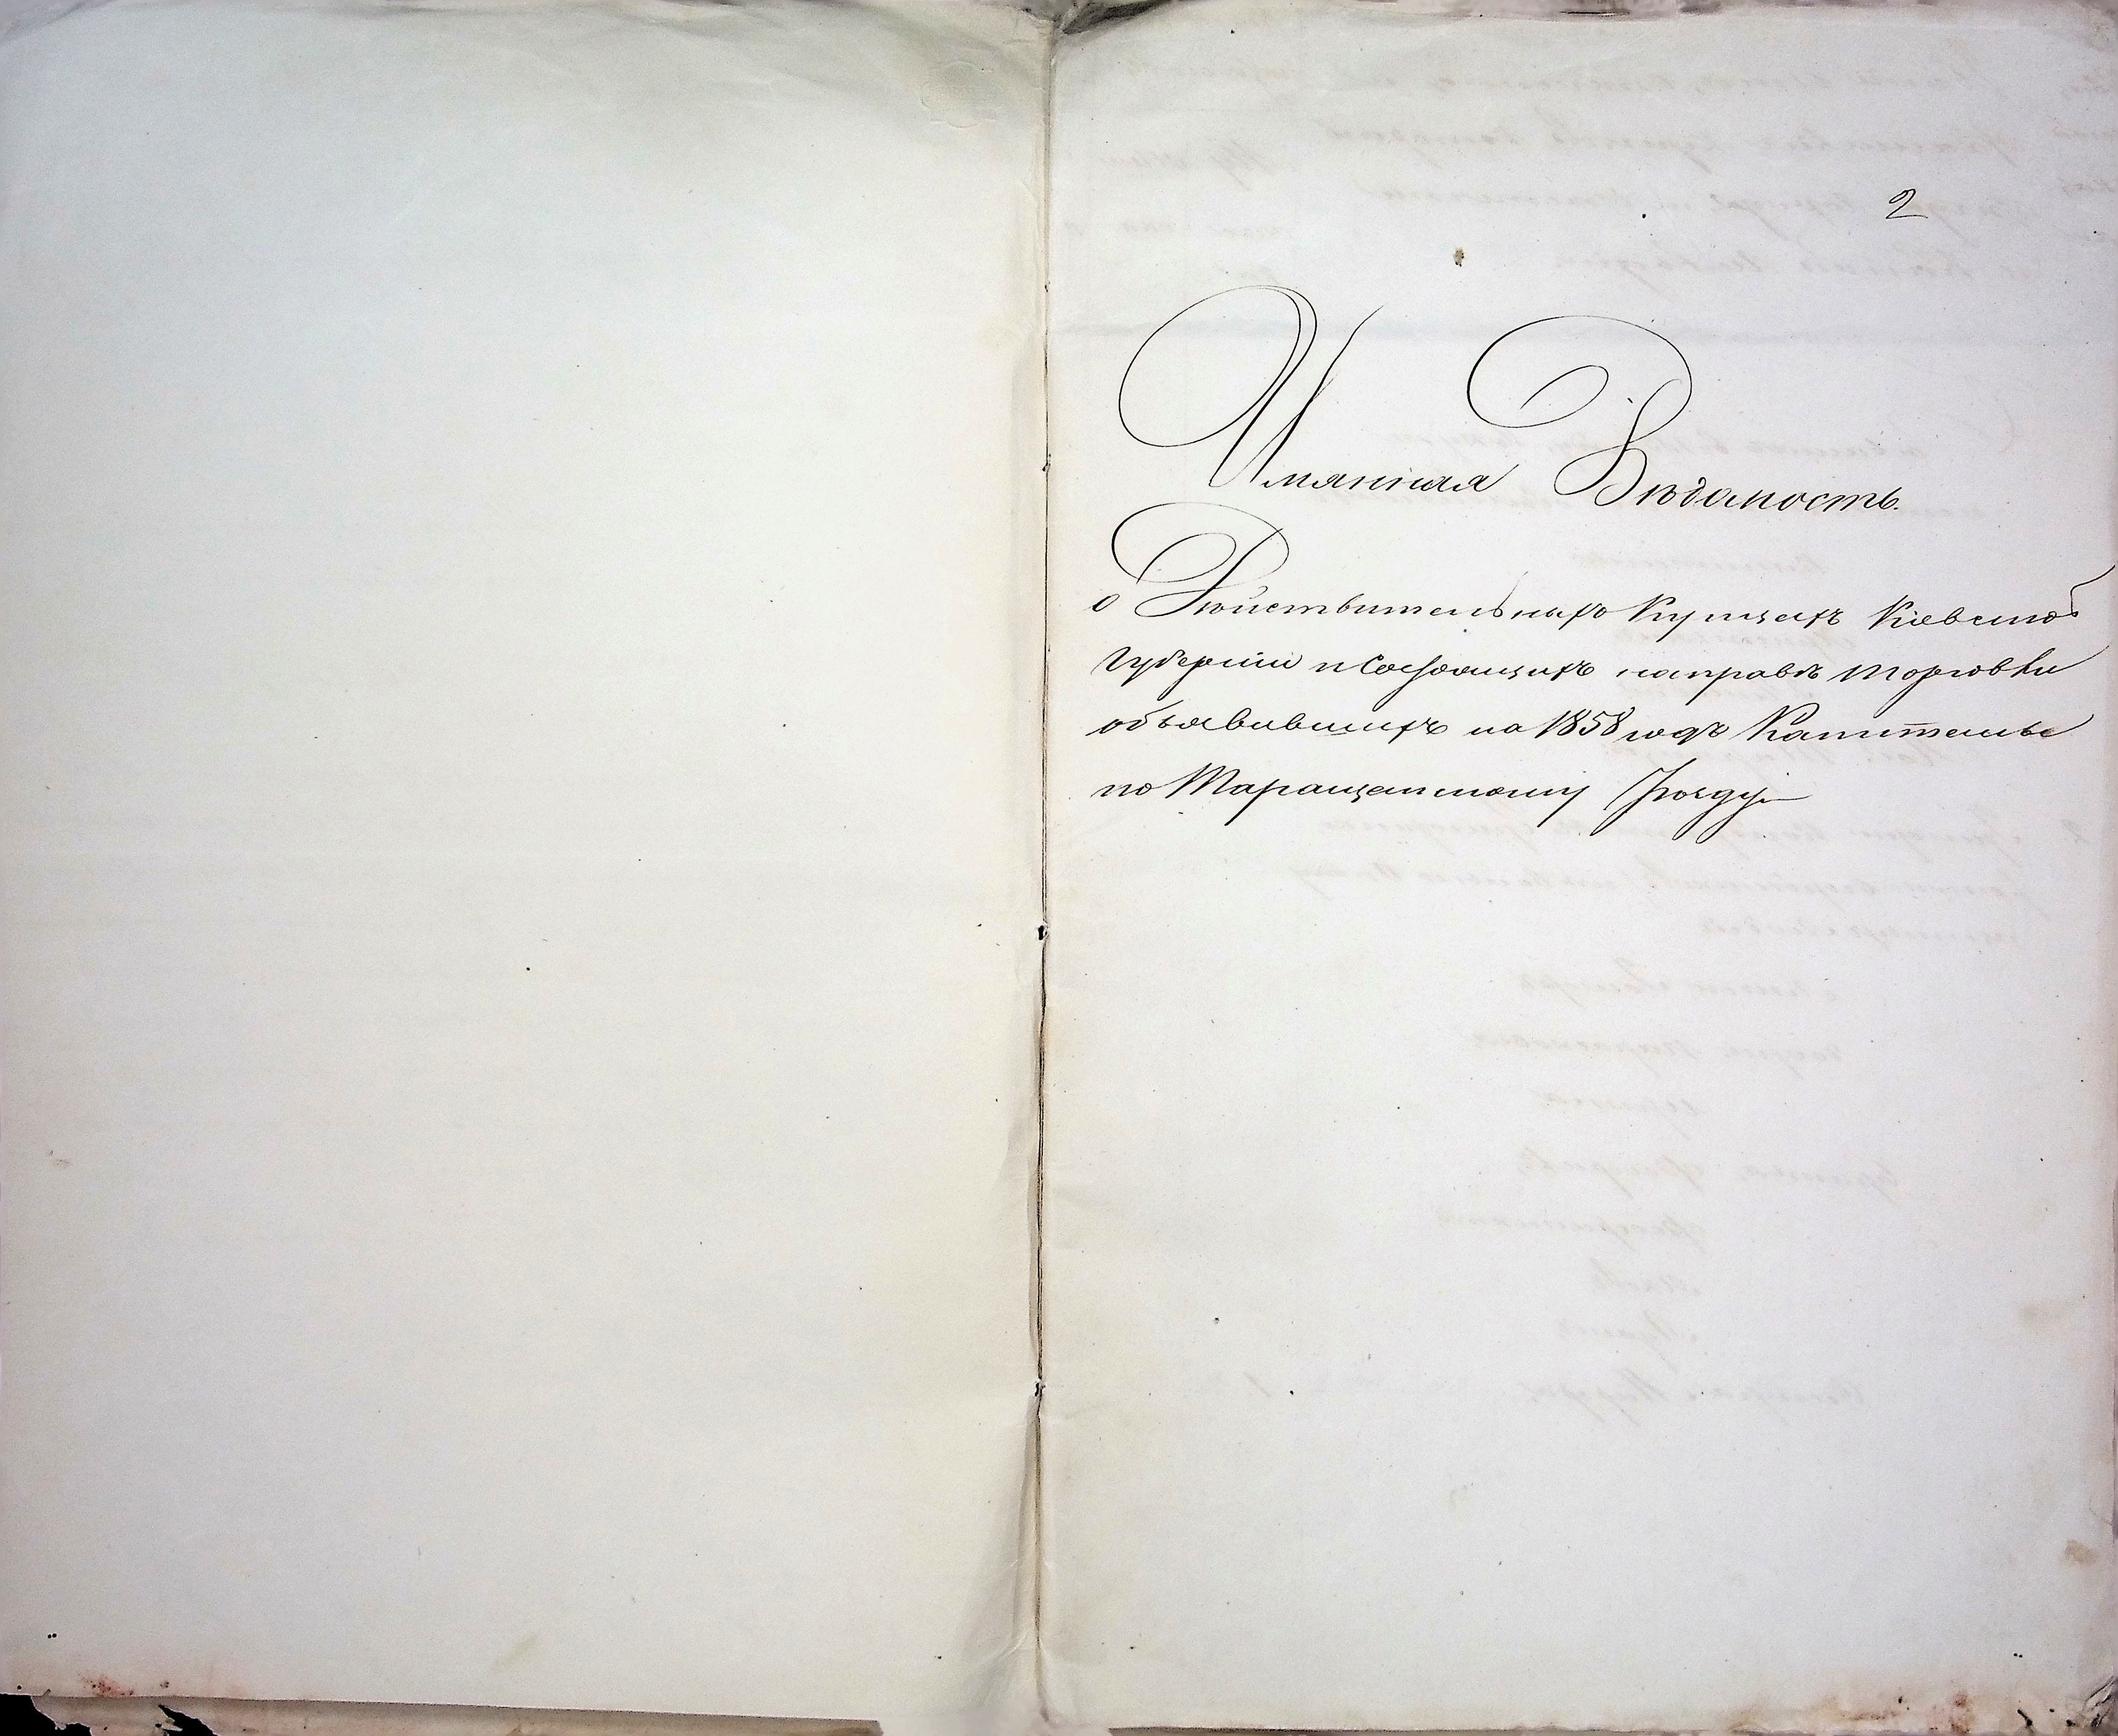 2
Имянная Вѣдомость
о Дѣйствительныхъ Купцахъ Кіевской
Губерніи и Состоящихъ на правѣ торговли
объявившихъ на 1858 годъ Капиталы
по Таращанскому Уѣзду